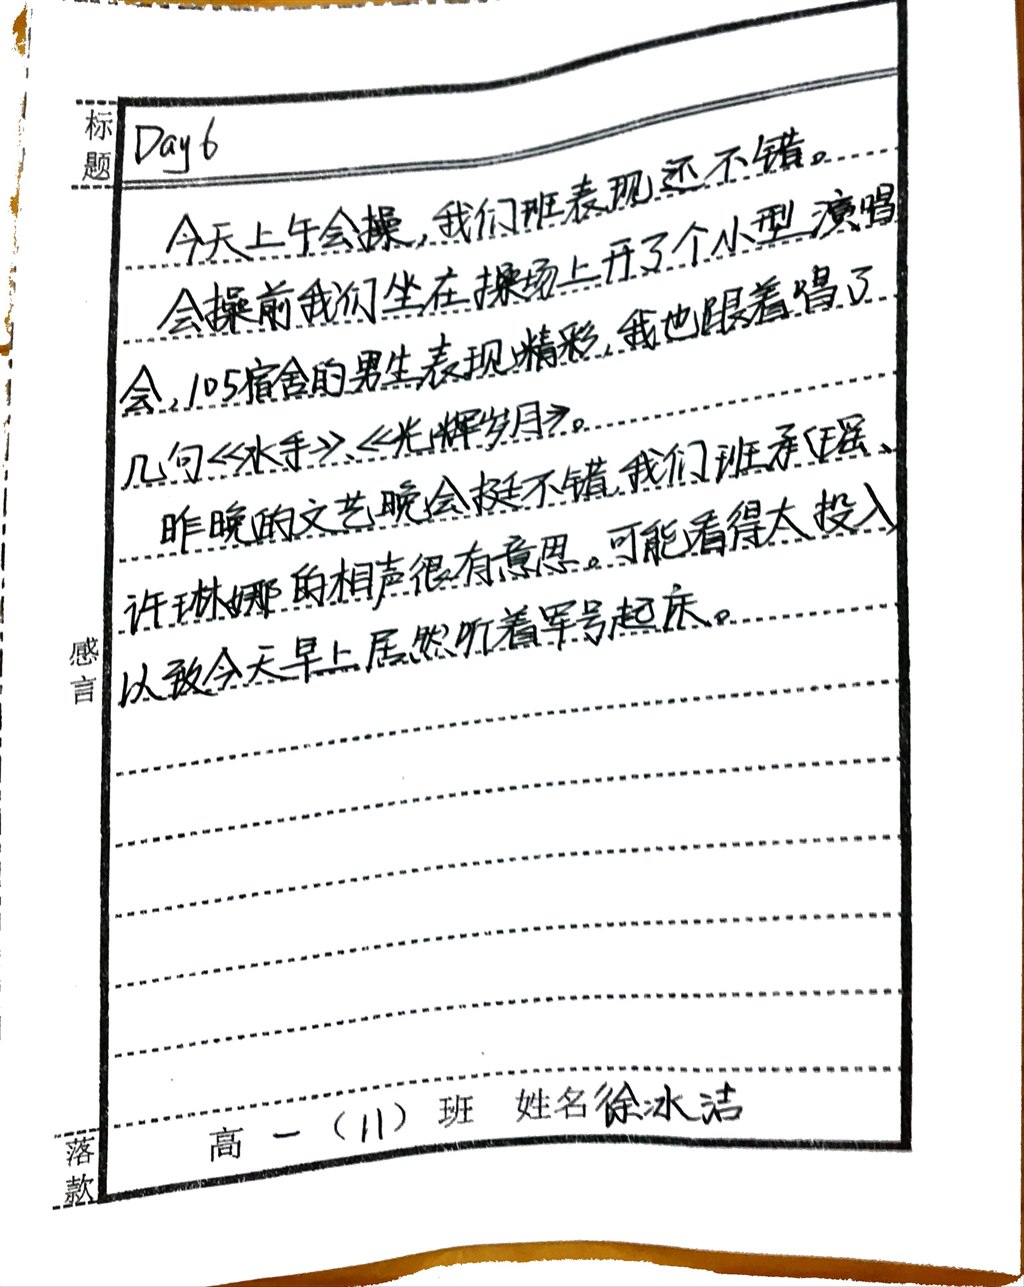 标题 Day 6
今天上午会操,我们班表现还不错。
会操前我们坐在操场上开了个小型演唱
会,105宿舍的男生表现精彩,我也跟着唱了
几句《水手》、《光辉岁月》。
昨晚的文艺晚会挺不错,我们班承瑶、
许琳娜的相声很有意思。可能看得太投入
以致今天早上居然听着军号起床。
感言
落款 高一(11)班 姓名徐冰洁